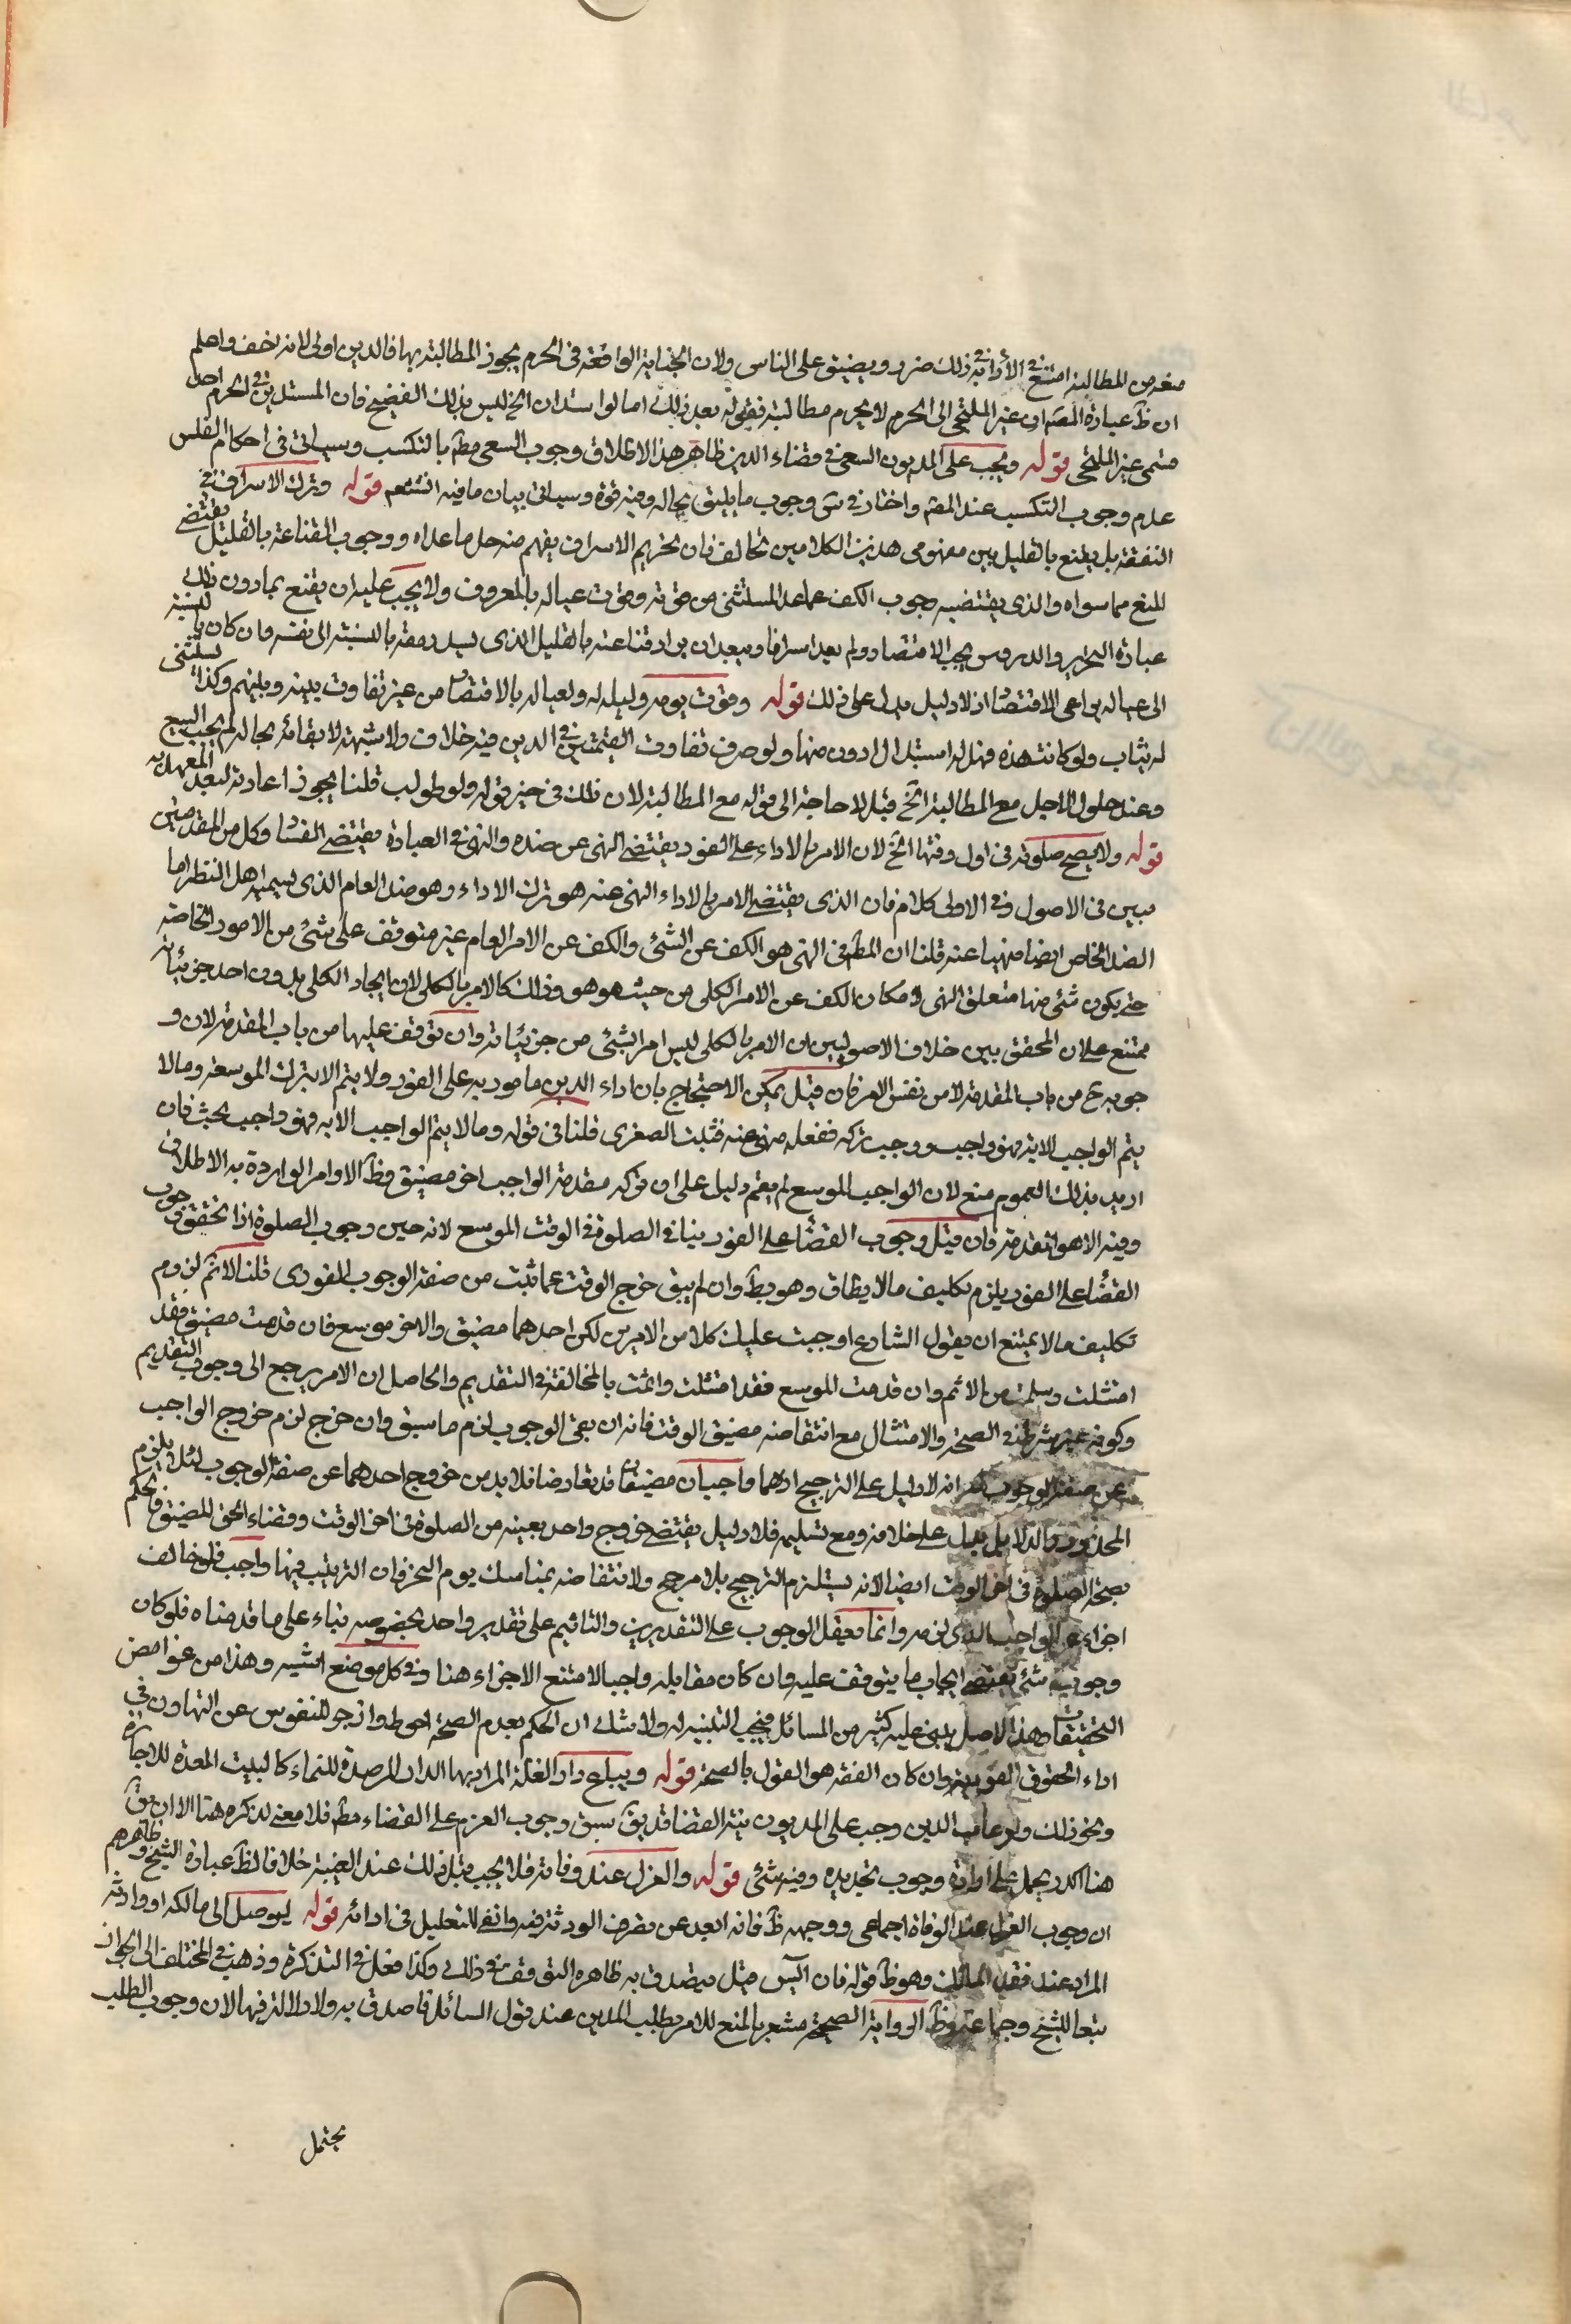 صغر من المطالبة امتنع في الأداء ففي ذلك ضرر ويضيق على الناس ولان الجناية الواقعة في الحرم يجوز المطالبة بها فالدين اولى لانه اخف واعلم
ان ظ عبارة المصـ ان غير الملتجي الى الحرم لا يحرم مطالبته فقوله بعد ذلك اما لو استدان الخ ليس بذلك الفصيح فان المستدين في الحرم احد
قسمي غير الملتجي قوله ويجب على المديون السعي في قضاء الدين ظاهر هذا الاطلاق وجوب السعي مط بالتكسب وسياتي في احكام الفلس
عدم وجوب التكسب عند المصـ واختار في س وجوب ما يليق بحاله وفيه قوة وسياتي بيان ما فيه انشٓم قوله وترك الاسراف في
النفقة بل يقنع بالقليل بين مفهومي هذين الكلامين تخالف فان تحريم الاسراف يفهم منه حل ما عداه ووجوب القناعة بالقليل يقتضي
المنع مما سواه والذي يقتضيه وجوب الكف عما عدا المستثنى من قوته وقوت عياله بالمعروف ولا يجب عليه ان يقنع بما دون ذلك
عبارة التحرير والدروس يجب الاقتصاد ولم يعد اسرافا ويبعد ان يراد قناعته بالقليل الذي يسد رمقه بالنسبة الى نفسه وان كان بالنسبة
الى عياله يراعي الاقتصاد اذ لا دليل يدل على ذلك قوله وقوت يومه وليله له ولعياله بالاقتصاد من غير تفاوت بينه وبينهم وكذا يستثنى
له ثياب ولو كانت هذه فهل له استبدال ادون منها ولو صرف تفاوت القيمتين في الدين فيه خلاف ولا شبهة لا بقائه بحاله لم يجب البيع
وعند حلول الاجل مع المطالبة الخ قيل لا حاجة الى قوله مع المطالبة لان ذلك في حيز قوله ولو طولب قلنا يجوز اعادته لبعد المعهد به
قوله ولا يصح صلوته في اول وقتها الخ لان الامر بالاداء على الفور يقتضي النهي عن ضده والنهي في العبادة يقتضي الفساد وكل من المقدمتين
مبين في الاصول وفي الاولى كلام فان الذي يقتضي الامر بالاداء النهي عنه هو ترك الاداء وهو ضد العام الذي يسميه اهل النظر اما
الضد الخاص ايضا منهيا عنه قلنا ان المط في النهي هو الكف عن الشئ والكف عن الامر العام غير متوقف على شئ من الامور الخاصة
حتى يكون شئ منها متعلق النهي لامكان الكف عن الامر الكلي من حيث هو هو وذلك كالامر بالكلي لان ايجاد الكلي بدون احد جزئياته
ممتنع على ان المحقق بين خلاف الاصوليين ان الامر بالكلي ليس امرا بشئ من جزئياته وان توقف عليها من باب المقدمة لان و
جوبه ح من باب المقدمة لا من نفس الامر فان قيل يمكن الاحتجاج بان اداء الدين مامور به على الفور ولا يتم الا بترك الموسعة وما لا
يتم الواجب الا به فهو واجب ووجب تركه ففعله منهي عنه فثبت الصغرى قلنا في قوله وما لا يتم الواجب الا به فهو واجب بحث فان
اريد بذلك العموم منع لان الواجب الموسع لم يقم دليل على ان تركه مقدمة الواجب اخر مضيق وظ الاوامر الواردة به الاطلاق
وفيه الاهوا المتقدمة فان قيل وجوب القضاء على الفور ينافي الصلوة في الوقت الموسع لانه حين وجوب الصلوة اذا تحقق وجوب
القضاء على الفور يلزم تكليف ما لا يطاق وهو بط وان لم يبق خرج الوقت عما ثبت من صفة الوجوب الفوري قلنا لا نم لزوم
تكليف ما لا يمتنع ان يقول الشارع اوجبت عليك كلا من الامرين لكن احدهما مضيق والاخر موسع فان قدمت مضيق فقد
امتثلت وسلمت من الاثم وان قدمت الموسع فقد امتثلت واثمت بالمخالفة في التقديم والحاصل ان الامر يرجع الى وجوب التقديم
وكونه غير شرط في الصحة والامتثال مع انتقاضه مضيق الوقت فانه ان بقي الوجوب لزم ما سبق وان خرج لزم خروج الواجب
عن صفة الوجوب مع انه لا دليل على الترجيح اذ هما واجبان مضيقان قد تعارضا فلا بد من خروج احدهما عن صفة الوجوب لئلا يلزم
المحذور والدلايل يدل على خلافه ومع تسليمه فلا دليل يقتضي خروج واحد بعينه من الصلوة في اخر الوقت وقضاء الحق المضيق فالحكم
بصحة الصلوة في اخر الوقت ايضا لانه يستلزم الترجيح بلا مرجح ولانتقاضه بمناسك يوم النحر فان الترتيب فيها واجب فلو خالف
اجزاء عن الواجب الذي لزمه وانما يعقل الوجوب على التقديرين والتاثيم على تقدير واحد بخصوصه بناء على ما قدمناه فلو كان
وجوب شئ يقتضي ايجاب ما يتوقف عليه وان كان مقابله واجبا لامتنع الاجزاء هنا وفي كل موضع اشبه وهذا من غوامض
التحقيقات وهذا الاصل يبنى عليه كثير من المسائل فيجب التنبيه له ولا شك ان الحكم بعدم الصحة احوط وازجر للنفوس عن التهاون في
اداء الحقوق الفورية وان كان الفقه هو القول بالصحة قوله ويباع دار الغلة المراد بها الدار المرصدة للنماء كالبيت المعدة للاجارة
ونحو ذلك ولو غاب الدين وجب على المديون نية القضا قد يق سبق وجوب العزم على القضاء مط فلا معنى لذكره هنا الا ان يق
هنا اكد ويحمل على ارادة وجوب تجديده وفيه شئ قوله والعزل عند وفاته فلا يجب قبل ذلك عند الغيبة خلافا لظ عبارة الشيخ وظاهرهم
ان وجوب العزل عند الوفاة اجماعي ووجهه ظ فانه ابعد عن تصرف الورثة فيه وانفى للتعليل في ادائه قوله ليوصل الى مالكه او وارثه
المراد عند فقد المالك وهو ظ قوله فان آيس قيل يتصدق به ظاهره التوقف في ذلك وكذا فعل في التذكرة وذهب في المختلف الى الجواز
تبعا للشيخ وجماعة وظ الرواية الصحيحة مشعر بالمنع للامر بطلب المدين عند قول السائل فاصدق به ولا دلالة فيها لان وجوب الطلب
يحتمل